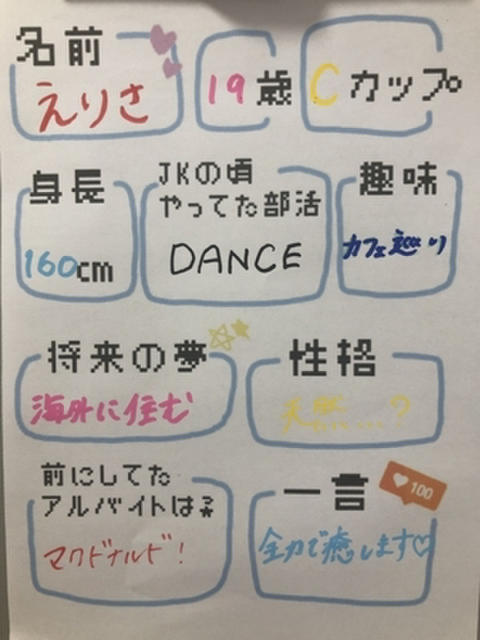 名前
えりさ
19歳
Cカップ
身長
160cm
JKの頃
やってた部活
DANCE
趣味
カフェ巡り
将来の夢
海外に住む
性格
天然...?
前にしてた
アルバイトは?
マクドナルド!
一言
100
全力で癒します♡